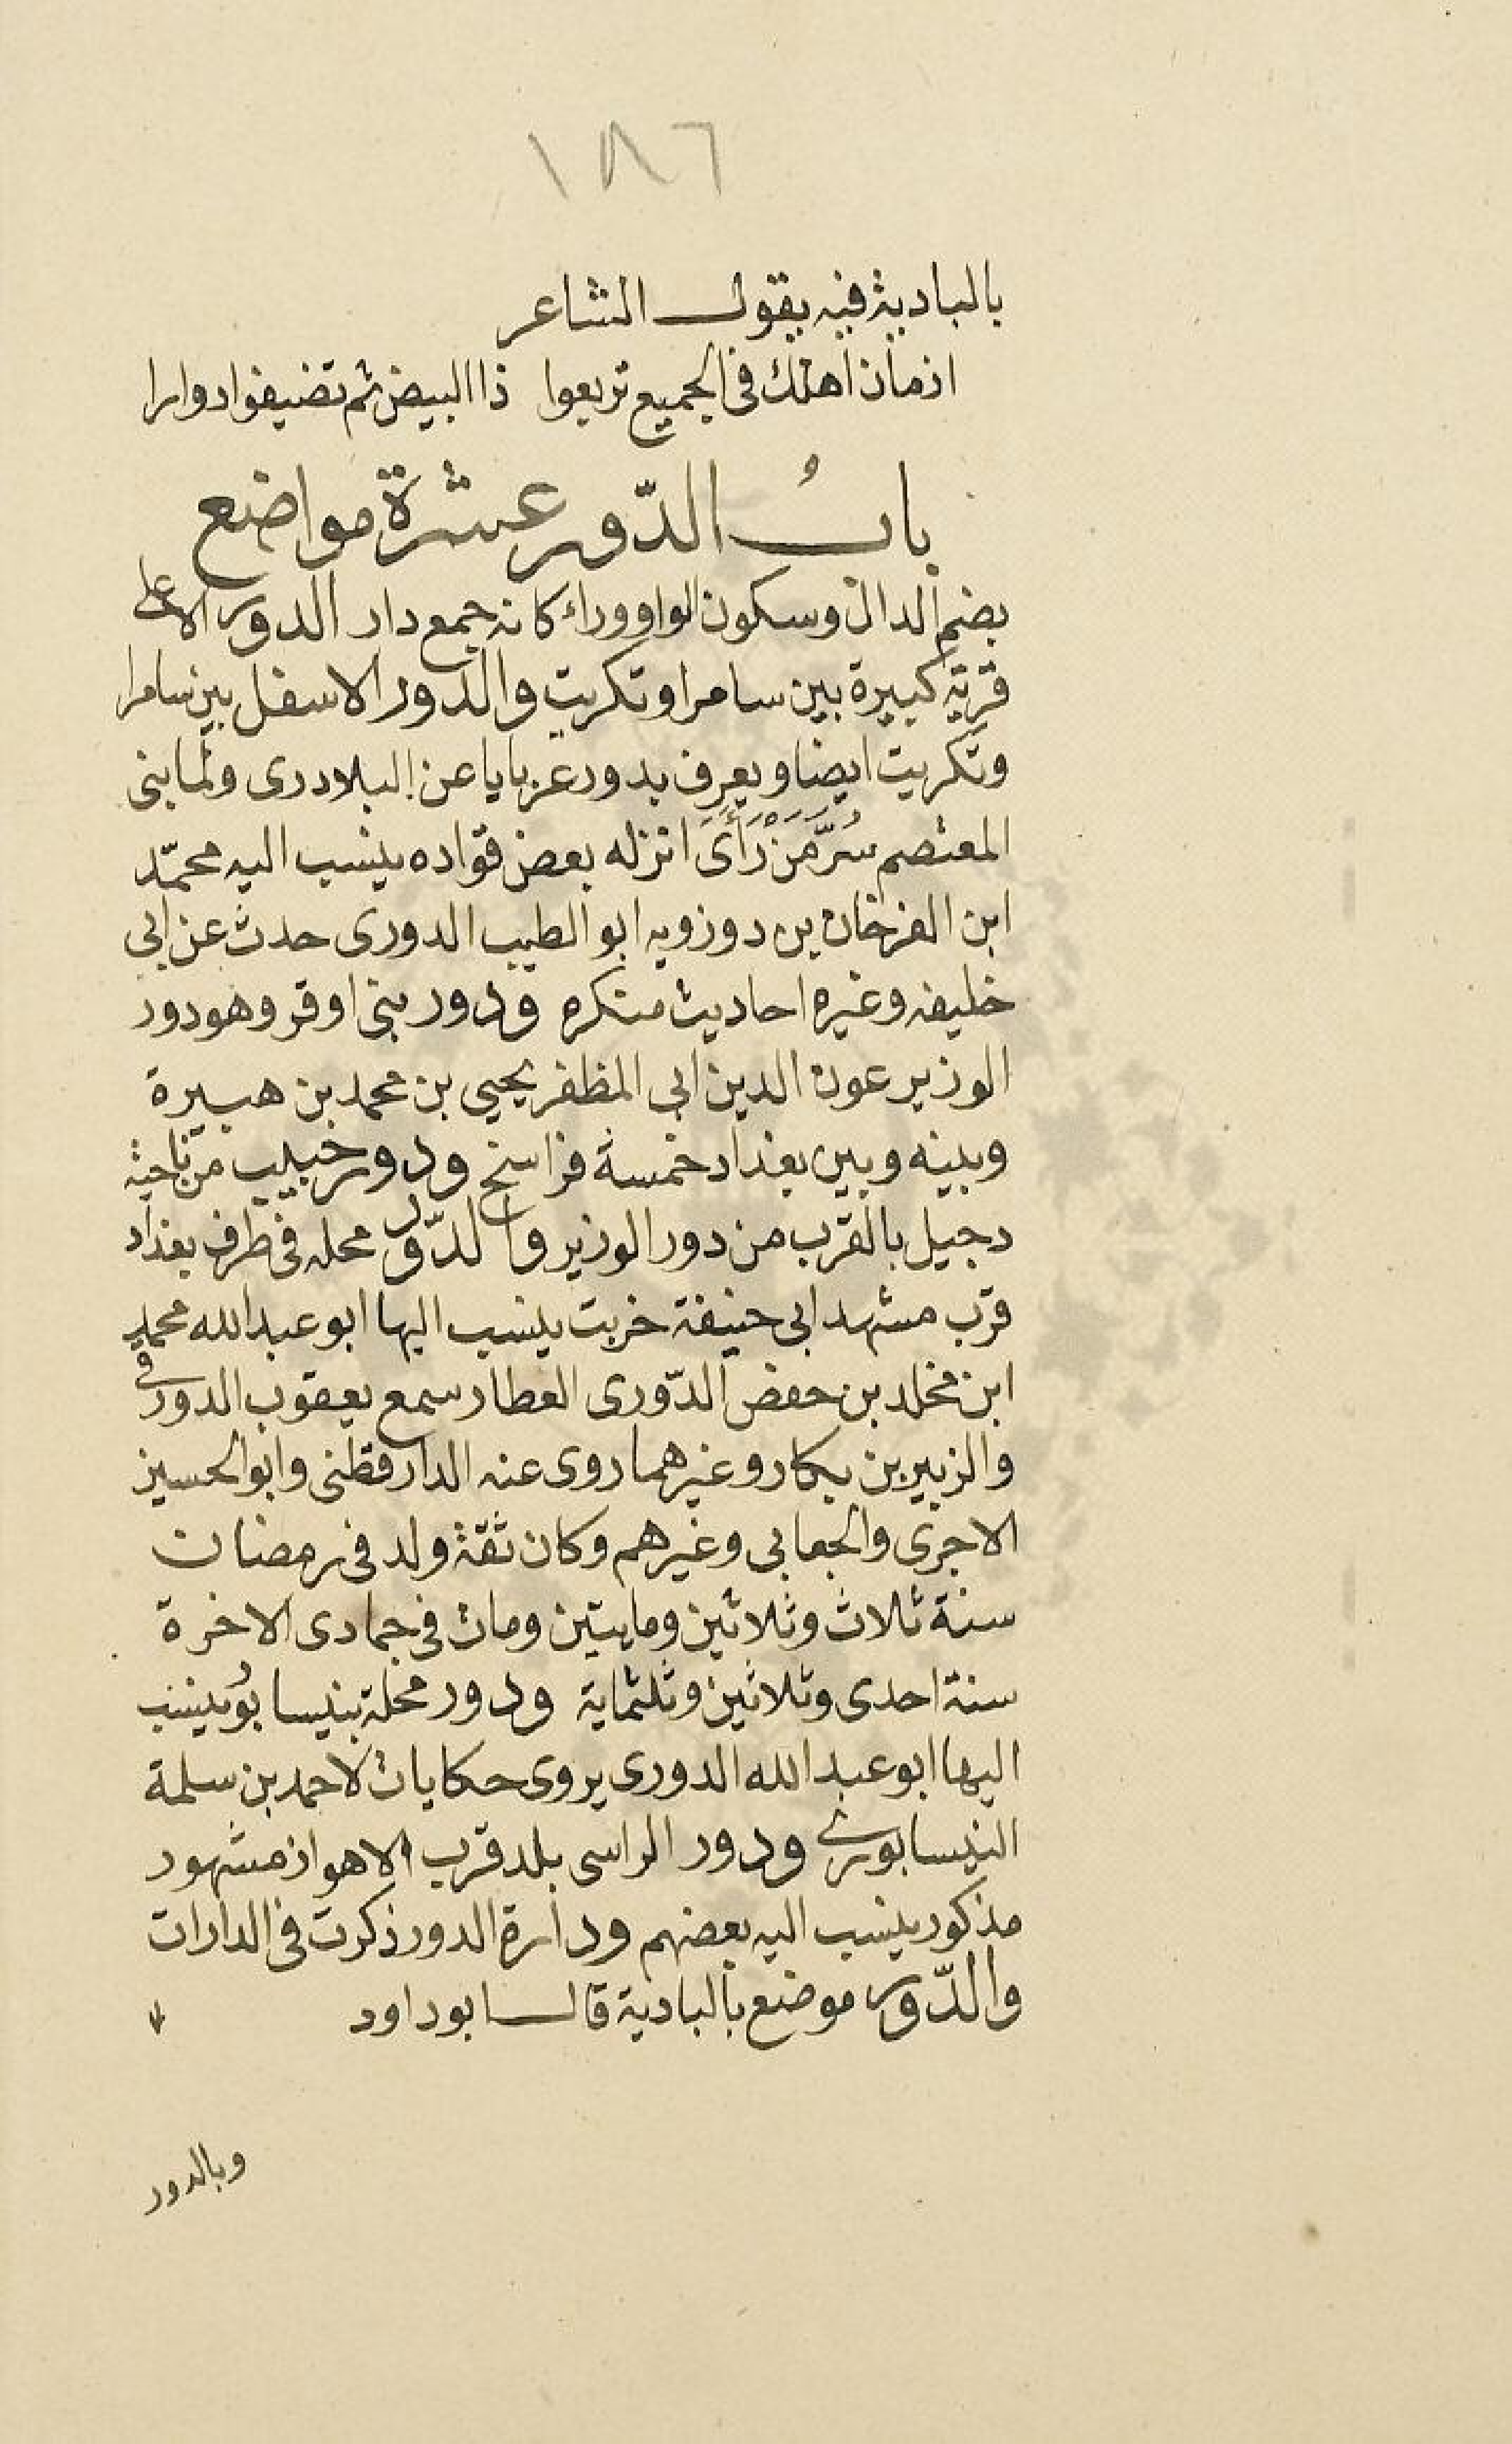 ١٨٦
بالبادية فيه يقول الشاعر
ازمان اهلك فى الجميع تربعوا ذا البيض ثم تضيفوا دوارا
بابُ الدّور عشرة مواضع
بضم الدال وسكون الواو وراء كانه جمع دار الدور الاعلى
قرية كبيرة بين سامرا وتكريت والدور الاسفل بين سامرا
وتكريت ايضا ويعرف بدور عزبايا عن البلاذرى ولما بنى
المعتصم سُرَّ مَنْ رَأَىَ انزله بعض قواده ينسب اليه محمّد
ابن الفرخان بن دوزويه ابو الطيب الدورى حدث عن ابى
خليفه وغيره احاديث منكره ودور بنى اوقر وهو دور
الوزير عون الدين ابى المظفر يحيى بن محمد بن هبيرة
وبينه وبين بغداد خمسة فراسخ ودور حبيب من ناحية
دجيل بالقرب من دور الوزير والدّور محله فى طرف بغداد
قرب مشهد ابى حنيفة خربت ينسب اليها ابو عبدالله محمد
ابن مخلد بن حفص الدّورى العطار سمع يعقوب الدورقى
والزبير بن بكار وغيرهما روى عنه الدارقطنى وابو الحسين
الاجرى والجعابى وغيرهم وكان ثقة ولد فى رمضان
سنة ثلاث وثلاثين ومايتين ومات فى جمادى الاخرة
سنة احدى وثلاثين وثلثماية ودور محلة بنيسابور ينسب
اليها ابو عبد الله الدورى يروى حكايات لاحمد بن سلمة
النيسابورى ودور الراسى بلد قرب الاهواز مشهور
مذكور ينسب اليه بعضهم ودارة الدور ذكرت فى الدارات
والدّور موضع بالبادية قال ابو داود
وبالدور